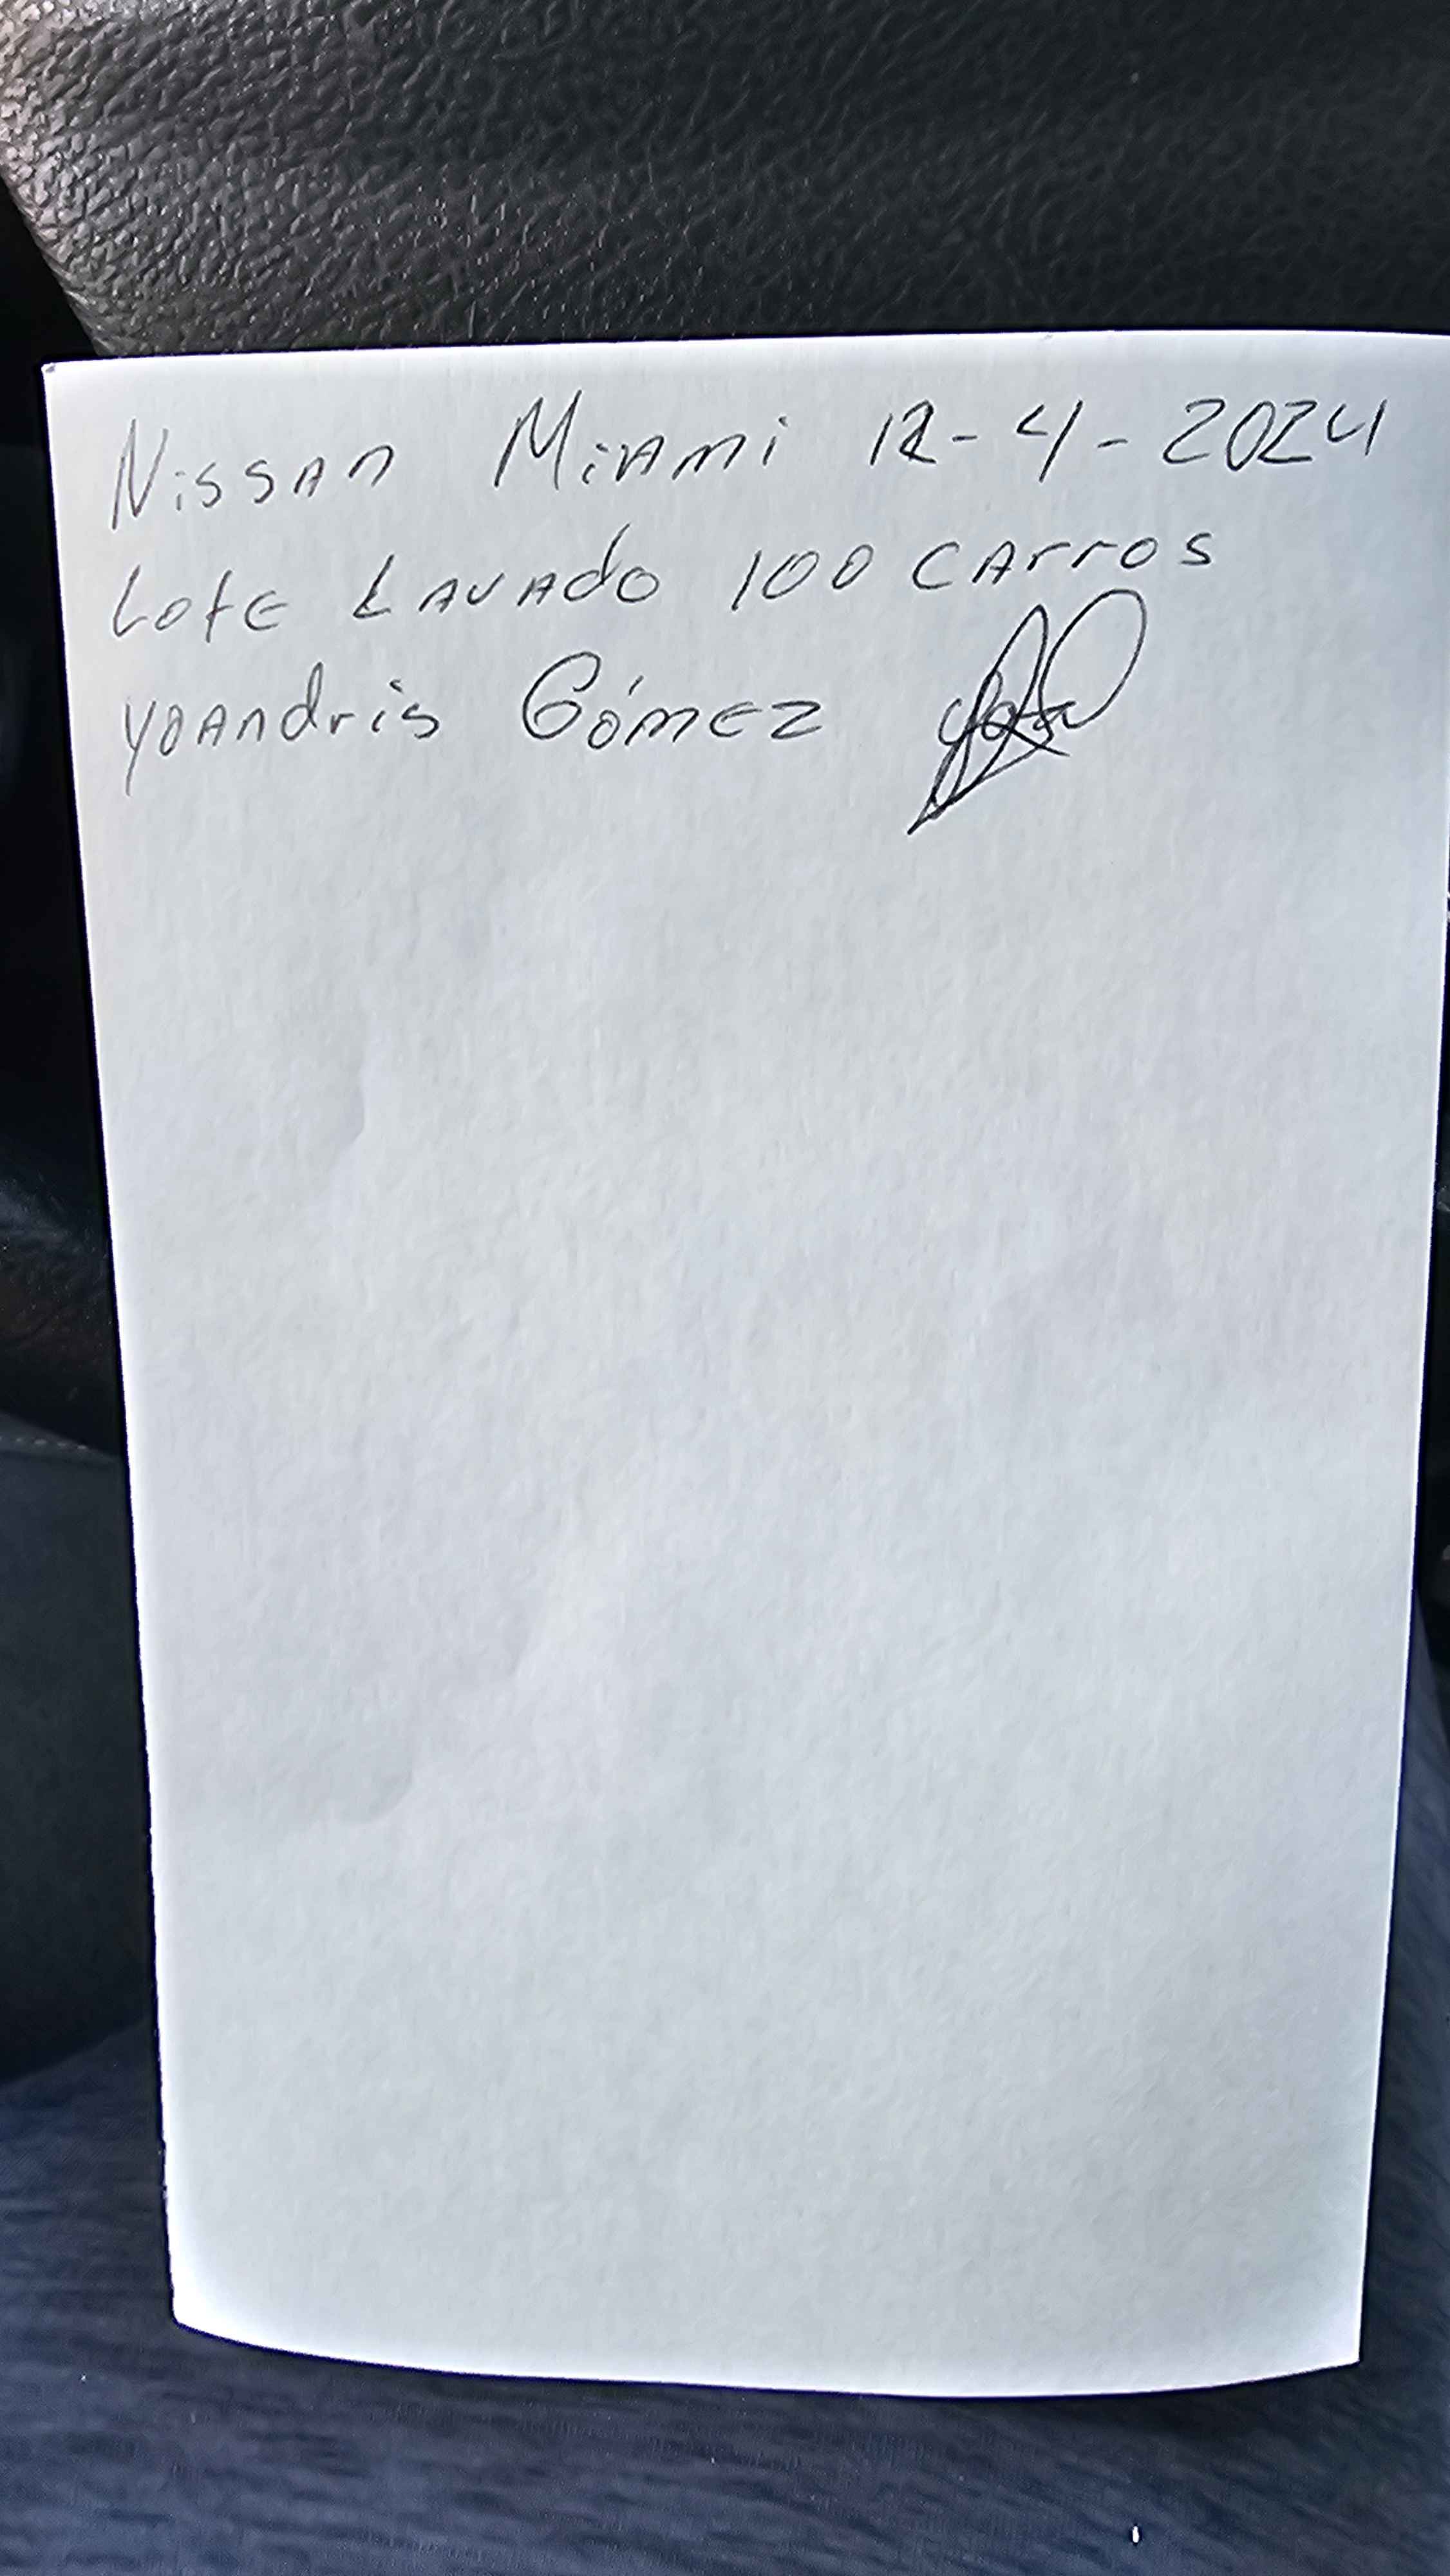 Nissan Miami 12-4-2024
Lote Lavado 100 carros
Yoandris Gómez